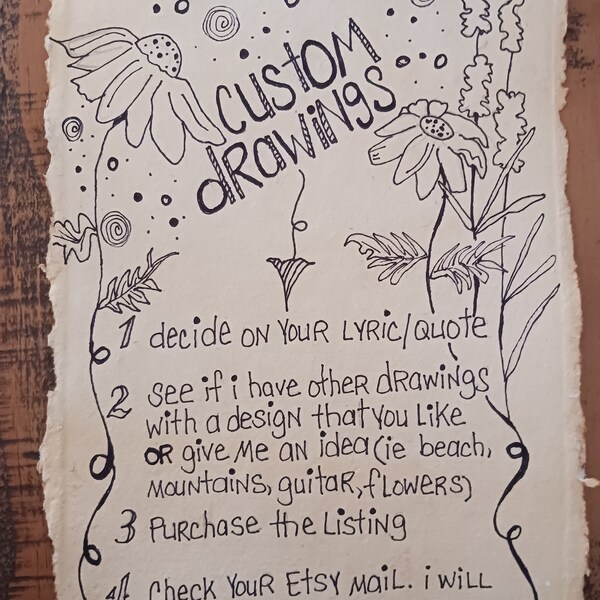 CUSTOM
dRAWiNGS
1 decide ON YOUR LYRIC/QUOTE
2 See if i have other dRawiNgs
with a design that you Like
OR give Me AN idea (ie beach,
MOUNtaiNS, guitaR, fLOWERS)
3 PURChase the ListiNg
4 Check YOUR EtsY MaiL. i WiLL